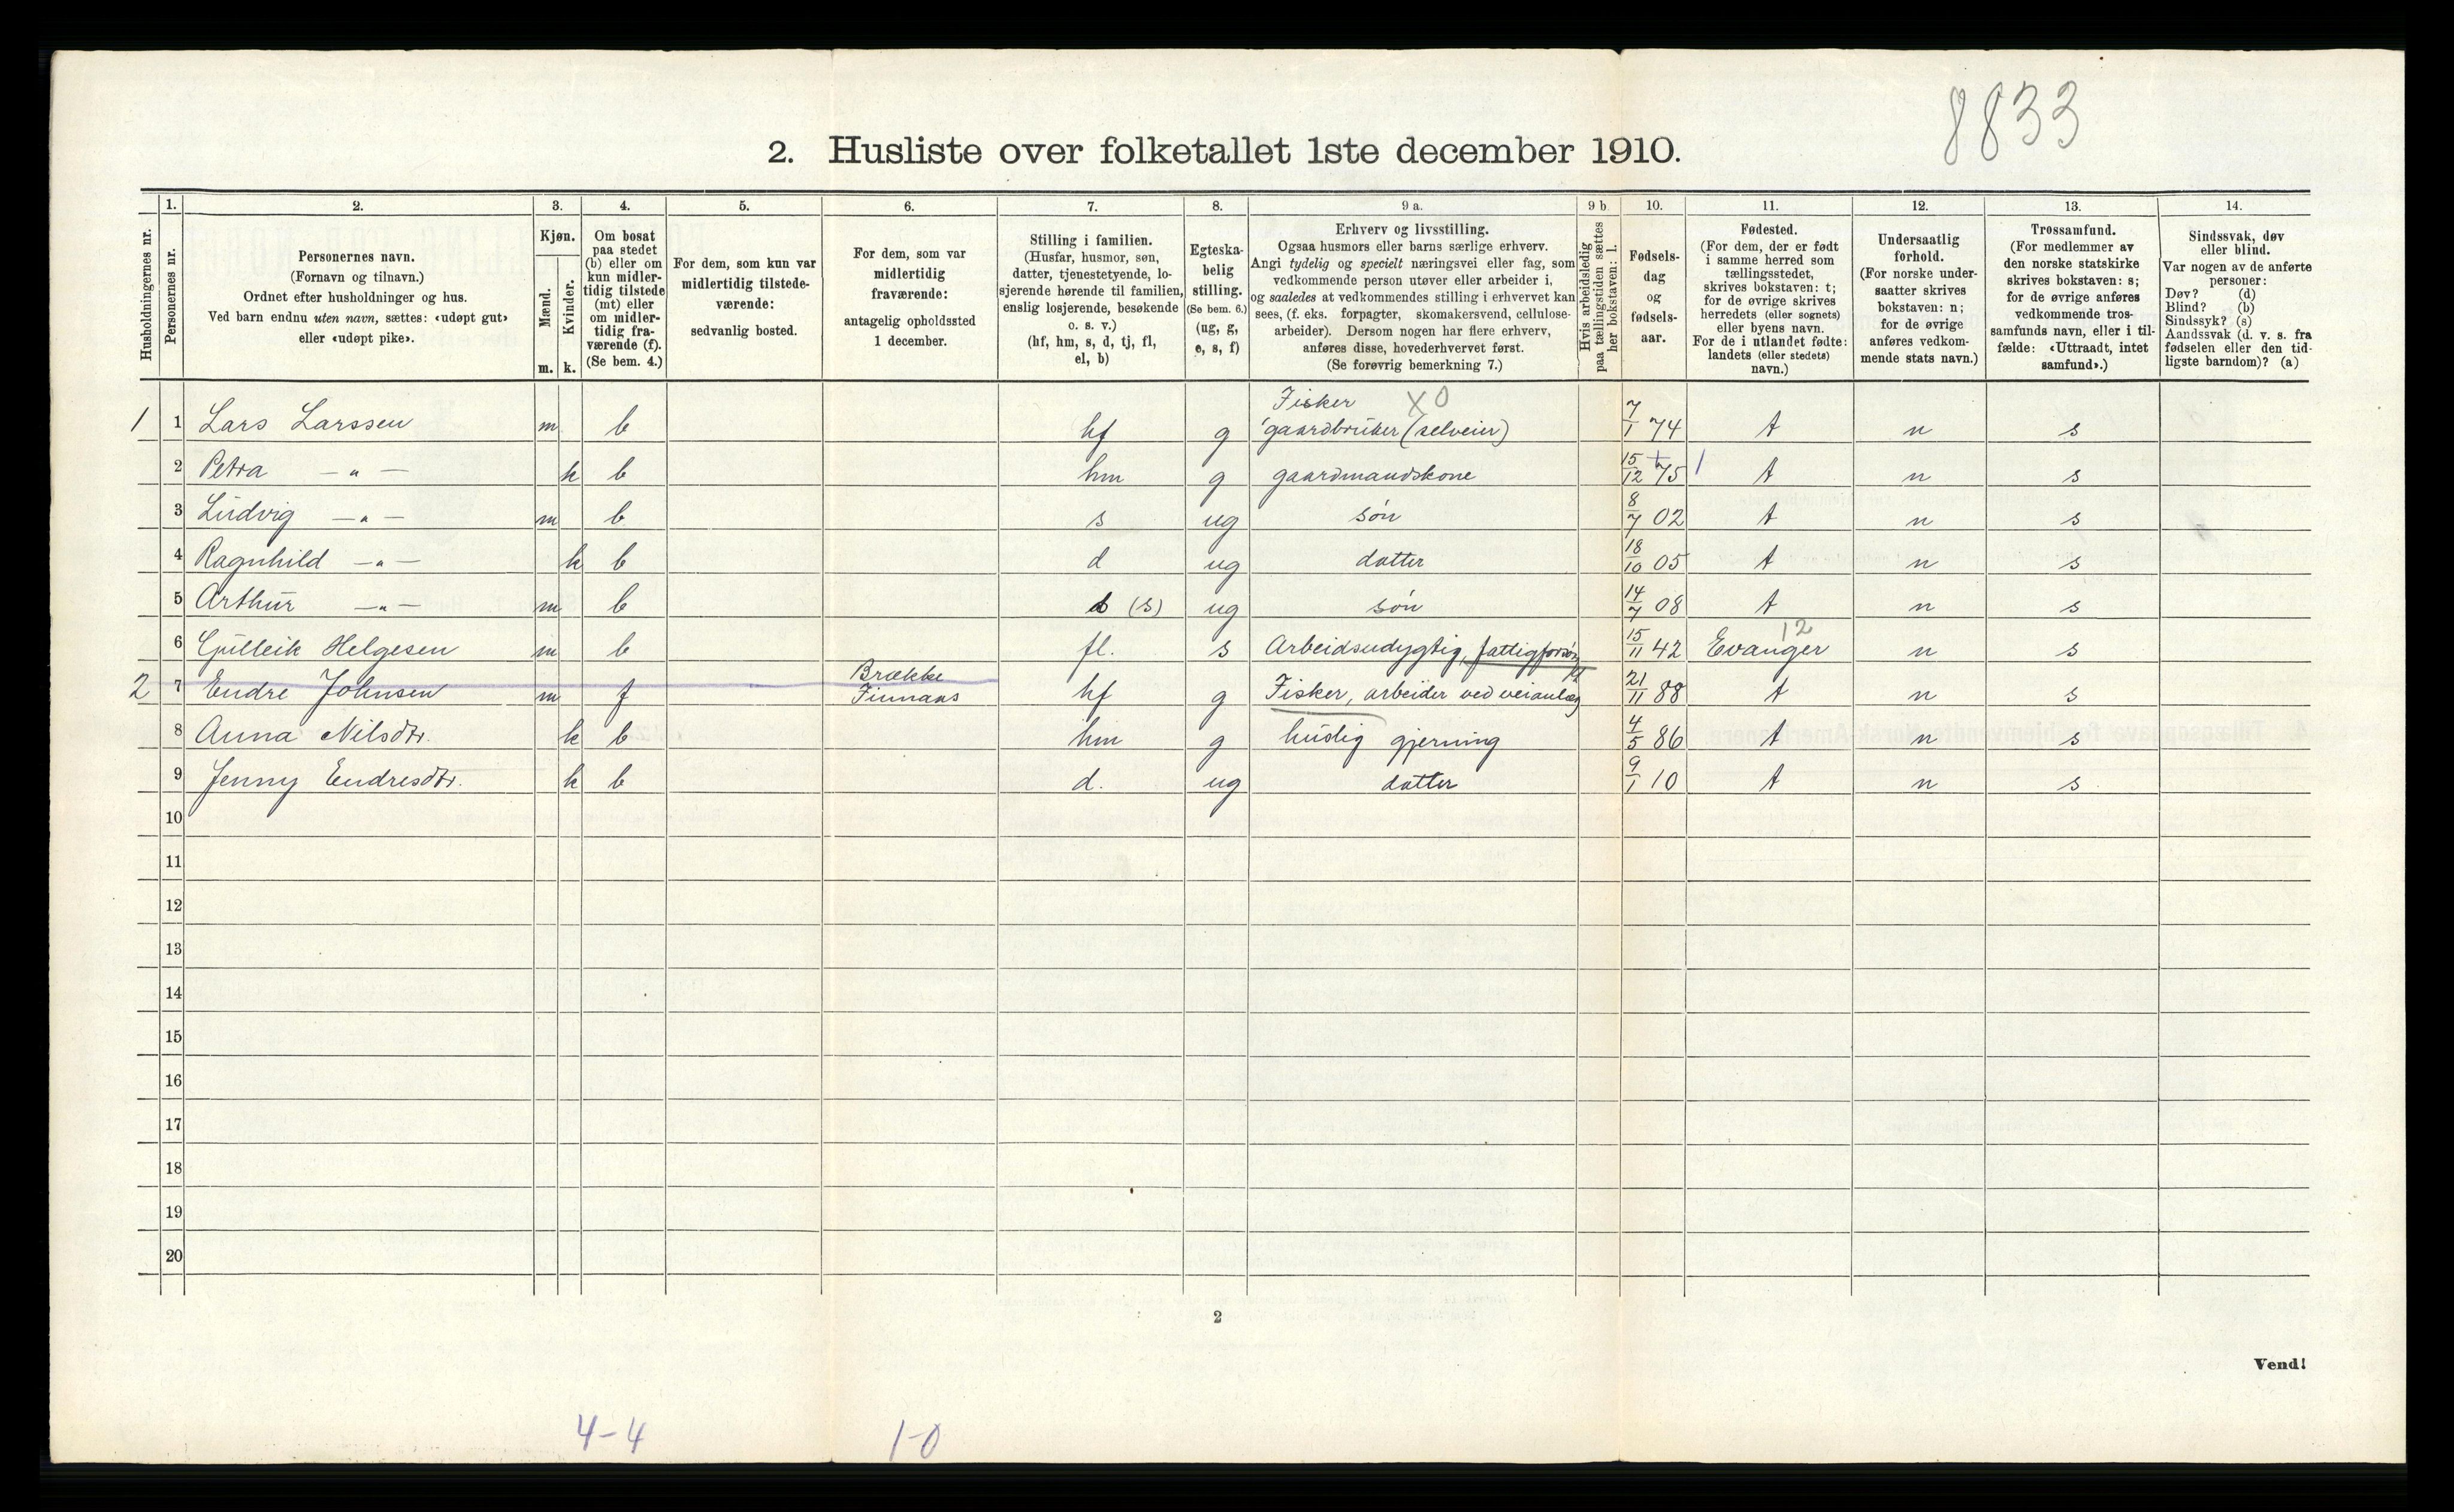 8833
2. Husliste over folketallet 1ste december 1910.
Husholdningernes nr.
1.
Personernes nr.
2.
Personernes navn.
(Fornavn og tilnavn.)
Ordnet efter husholdninger og hus.
Ved barn endnu uten navn, sættes: «udøpt gut»
eller «udøpt pike».
3.
Kjøn.
Mænd.
Kvinder.
m. k.
4.
Om bosat
paa stedet
(b) eller om
kun midler-
tidig tilstede
(mt) eller
om midler-
tidig fra-
værende (f).
(Se bem. 4.)
5.
For dem, som kun var
midlertidig tilstede-
værende:
sedvanlig bosted.
6.
For dem, som var
midlertidig
fraværende:
antagelig opholdssted
1 december.
7.
Stilling i familien.
(Husfar, husmor, søn,
datter, tjenestetyende, lo-
sjerende hørende til familien,
enslig losjerende, besøkende
o. s. v.)
(hf, hm, s, d, tj, fl,
el, b)
8.
Egteska-
belig
stilling.
(Se bem. 6.)
(ug, g,
e, s, f)
9 a.
Erhverv og livsstilling.
Ogsaa husmors eller barns særlige erhverv.
Angi tydelig og specielt næringsvei eller fag, som
vedkommende person utøver eller arbeider i,
og saaledes at vedkommendes stilling i erhvervet kan
sees, (f. eks. forpagter, skomakersvend, cellulose-
arbeider). Dersom nogen har flere erhverv,
anføres disse, hovederhvervet først.
(Se forøvrig bemerkning 7.)
9 b.
Hvis arbeidsledig
paa tællingstiden sættes
her bokstaven: l.
10.
Fødsels-
dag
og
fødsels-
aar.
11.
Fødested.
(For dem, der er født
i samme herred som
tællingsstedet,
skrives bokstaven: t;
for de øvrige skrives
herredets (eller sognets)
eller byens navn.
For de i utlandet fødte:
landets (eller stedets)
navn.)
12.
Undersaatlig
forhold.
(For norske under-
saatter skrives
bokstaven: n;
for de øvrige
anføres vedkom-
mende stats navn.)
13.
Trossamfund.
(For medlemmer av
den norske statskirke
skrives bokstaven: s;
for de øvrige anføres
vedkommende tros-
samfunds navn, eller i til-
fælde: «Uttraadt, intet
samfund».)
14.
Sindssvak, døv
eller blind.
Var nogen av de anførte
personer:
Døv? (d)
Blind? (b)
Sindssyk? (s)
Aandssvak (d. v. s. fra
fødselen eller den tid-
ligste barndom)? (a)
Fisker X0
1 1 Lars Larssen m b hf g gaardbruker (selveier) 7/1 74 t n s
2 Petra —"— k b hm g gaardmandskone 15/12 75 t n s
3 Ludvig —"— m b s ug søn 8/7 02 t n s
4 Ragnhild —"— k b d ug datter 18/10 05 t n s
5 Arthur —"— m b (s) ug søn 14/7 08 t n s
12
6 Gulleik Helgesen m b fl. s Arbeidsudygtig, fattigforsørg 15/11 42 Evanger n s
Brække
2 7 Endre Johnsen m f Finnaas hf g Fisker, arbeider ved veianlæg 21/11 88 t n s
8 Anna Nilsdtr. k b hm g huslig gjerning 4/5 86 t n s
9 Jenny Endresdtr. k b d. ug datter 9/1 10 t n s
10
11
12
13
14
15
16
17
18
19
20
2
Vend!
4-4 1-0